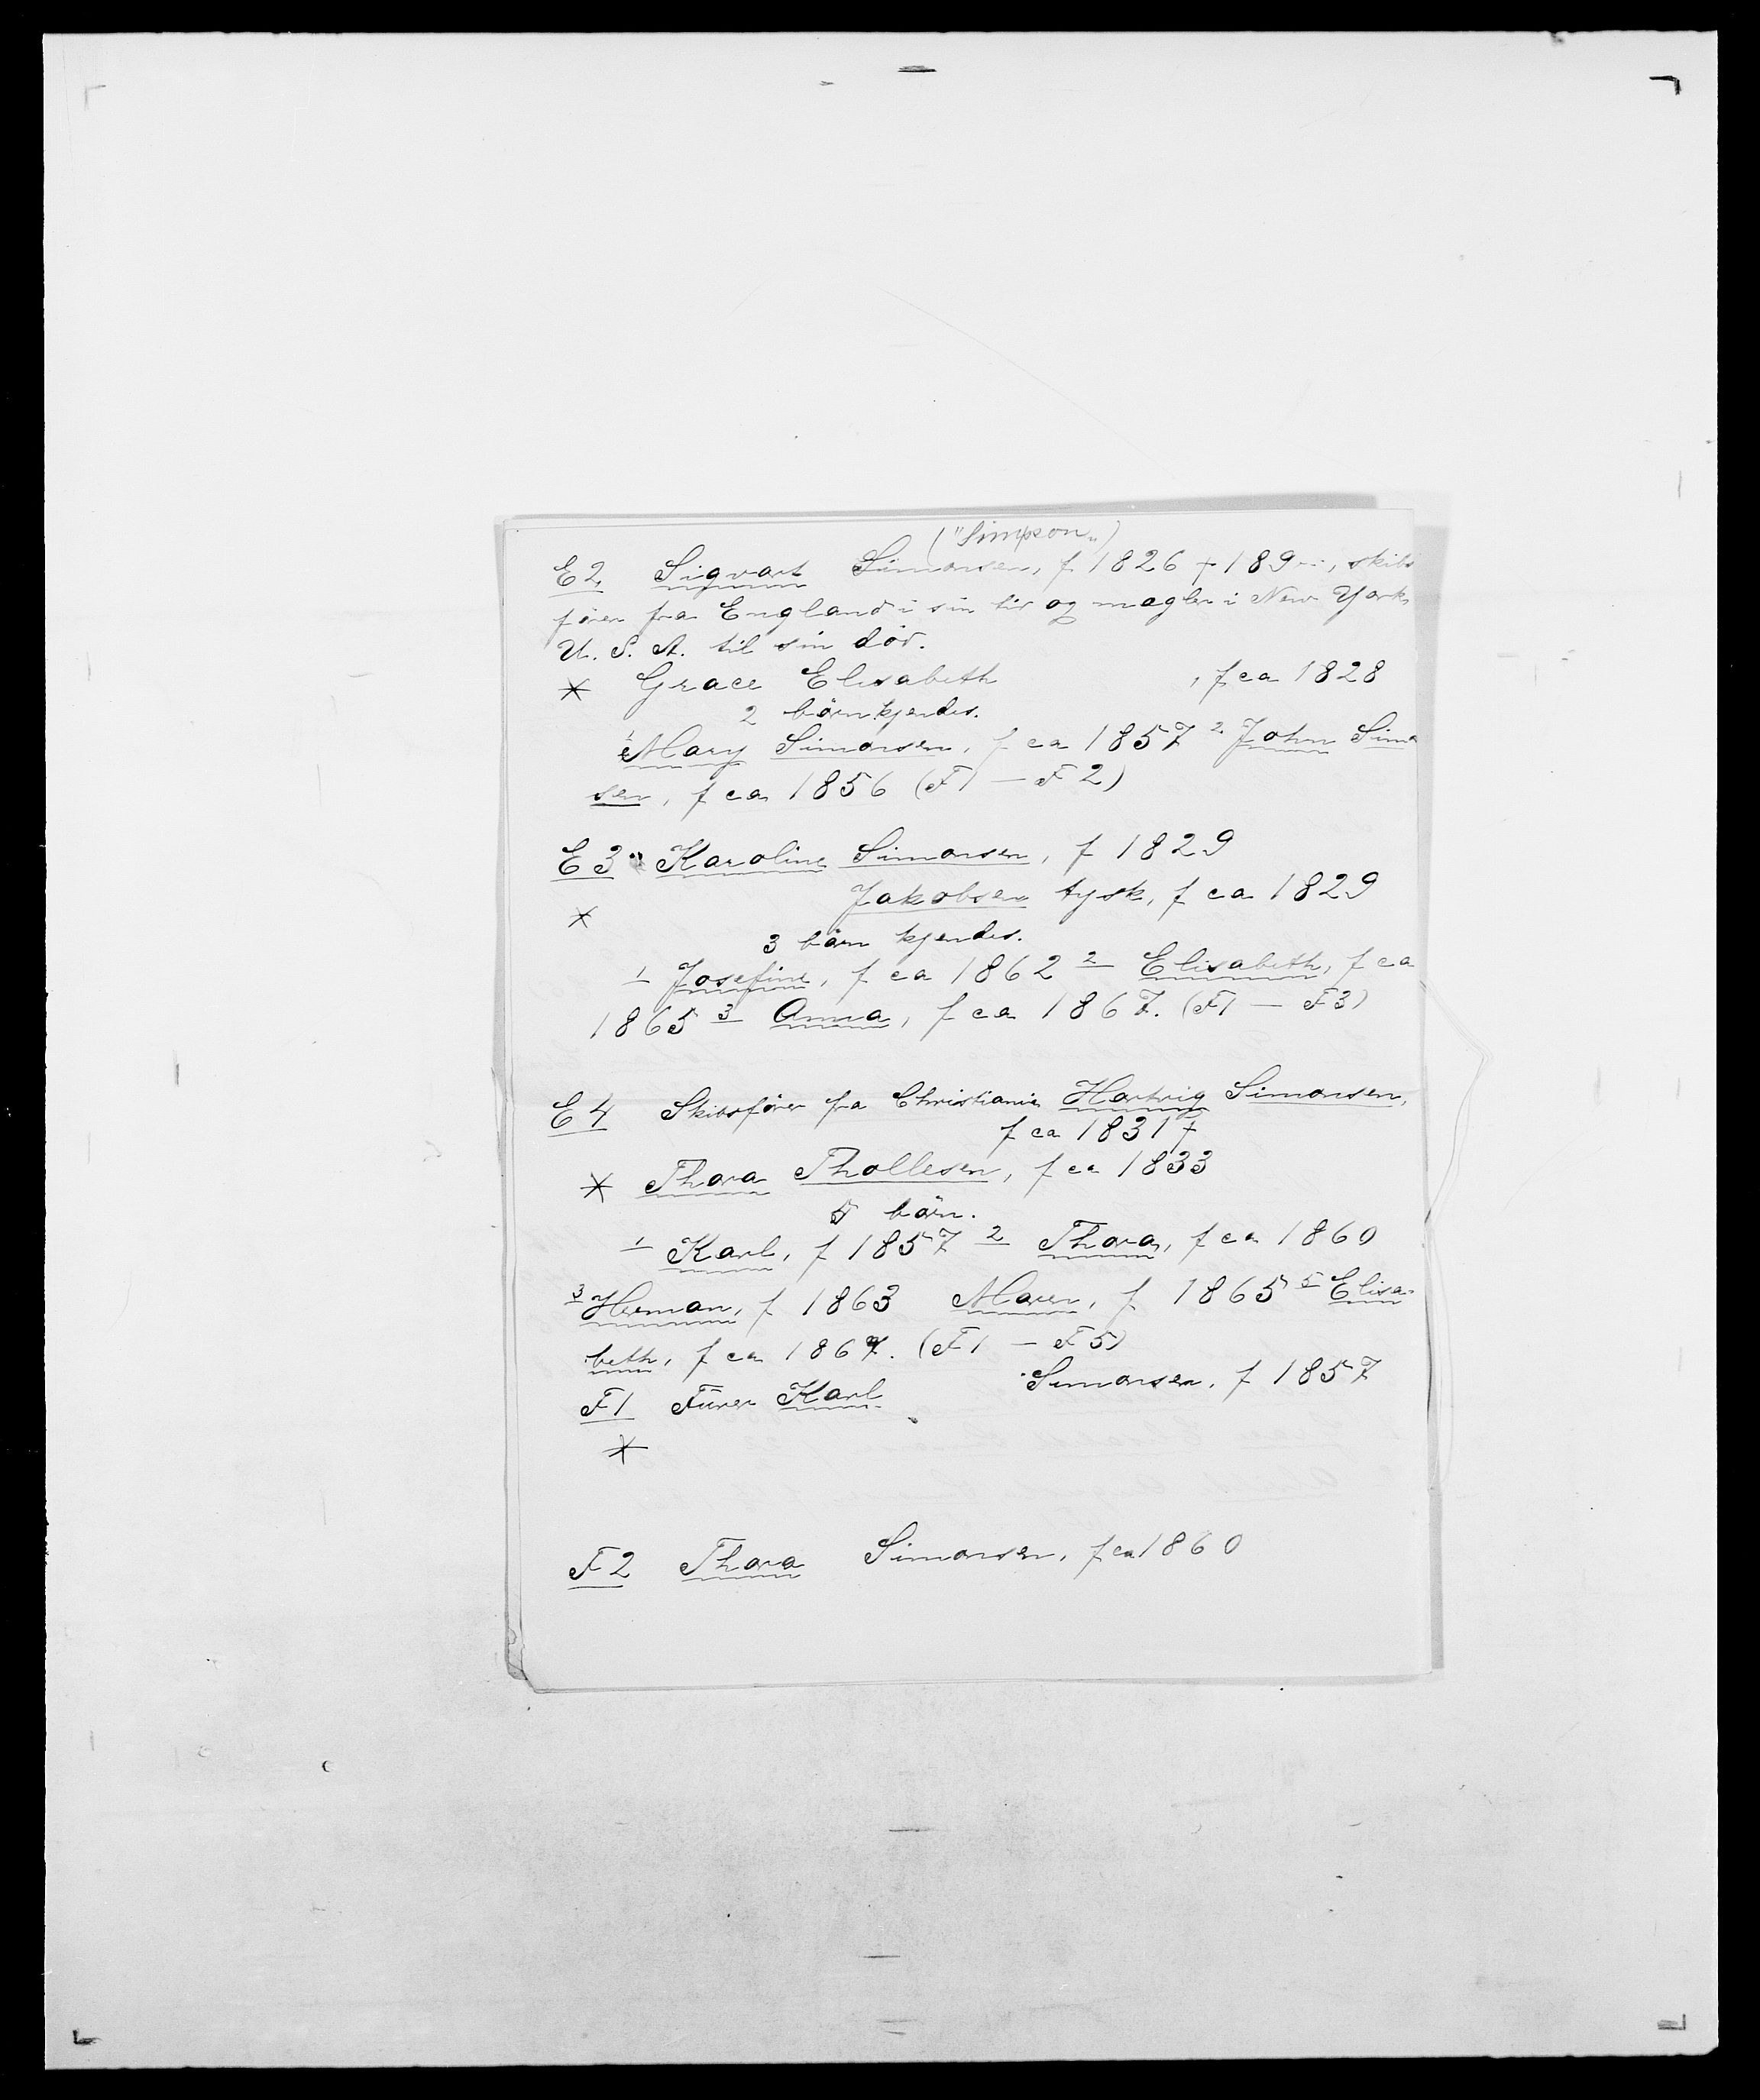 ("Simpson")
E2. Sigvart Simonsen, f 1826 † 189--, skibs
fører fra England i sin tid og megler i New York,
U. S. A. til sin død.
* Grace Elisabeth , f ca 1828
2 børn kjendes.
1 Mary Simonsen, f ca 1857 2 John Simo
sen, f ca 1856 (F1 — F2)
E3. Karoline Simonsen, f 1829
* Jakobsen tysk, f ca 1829
3 børn kjendes.
1 Josefine, f ca 1862 2 Elisabeth, f ca
1865 3 Anna, f ca 1867. (F1 — F3)
E4 Skibsfører fra Christiania Hartvig Simonsen,
f ca 1831 †
* Thora Thollesen, f ca 1833
5 børn.
1 Karl, f 1857 2 Thora, f ca 1860
3 Herman, f 1863 Maren, f 1865 5 Elisa-
beth, f ca 1867. (F1 — F5)
F1 Fürer Karl Simonsen, f 1857
*
F2 Thora Simonsen, f ca 1860